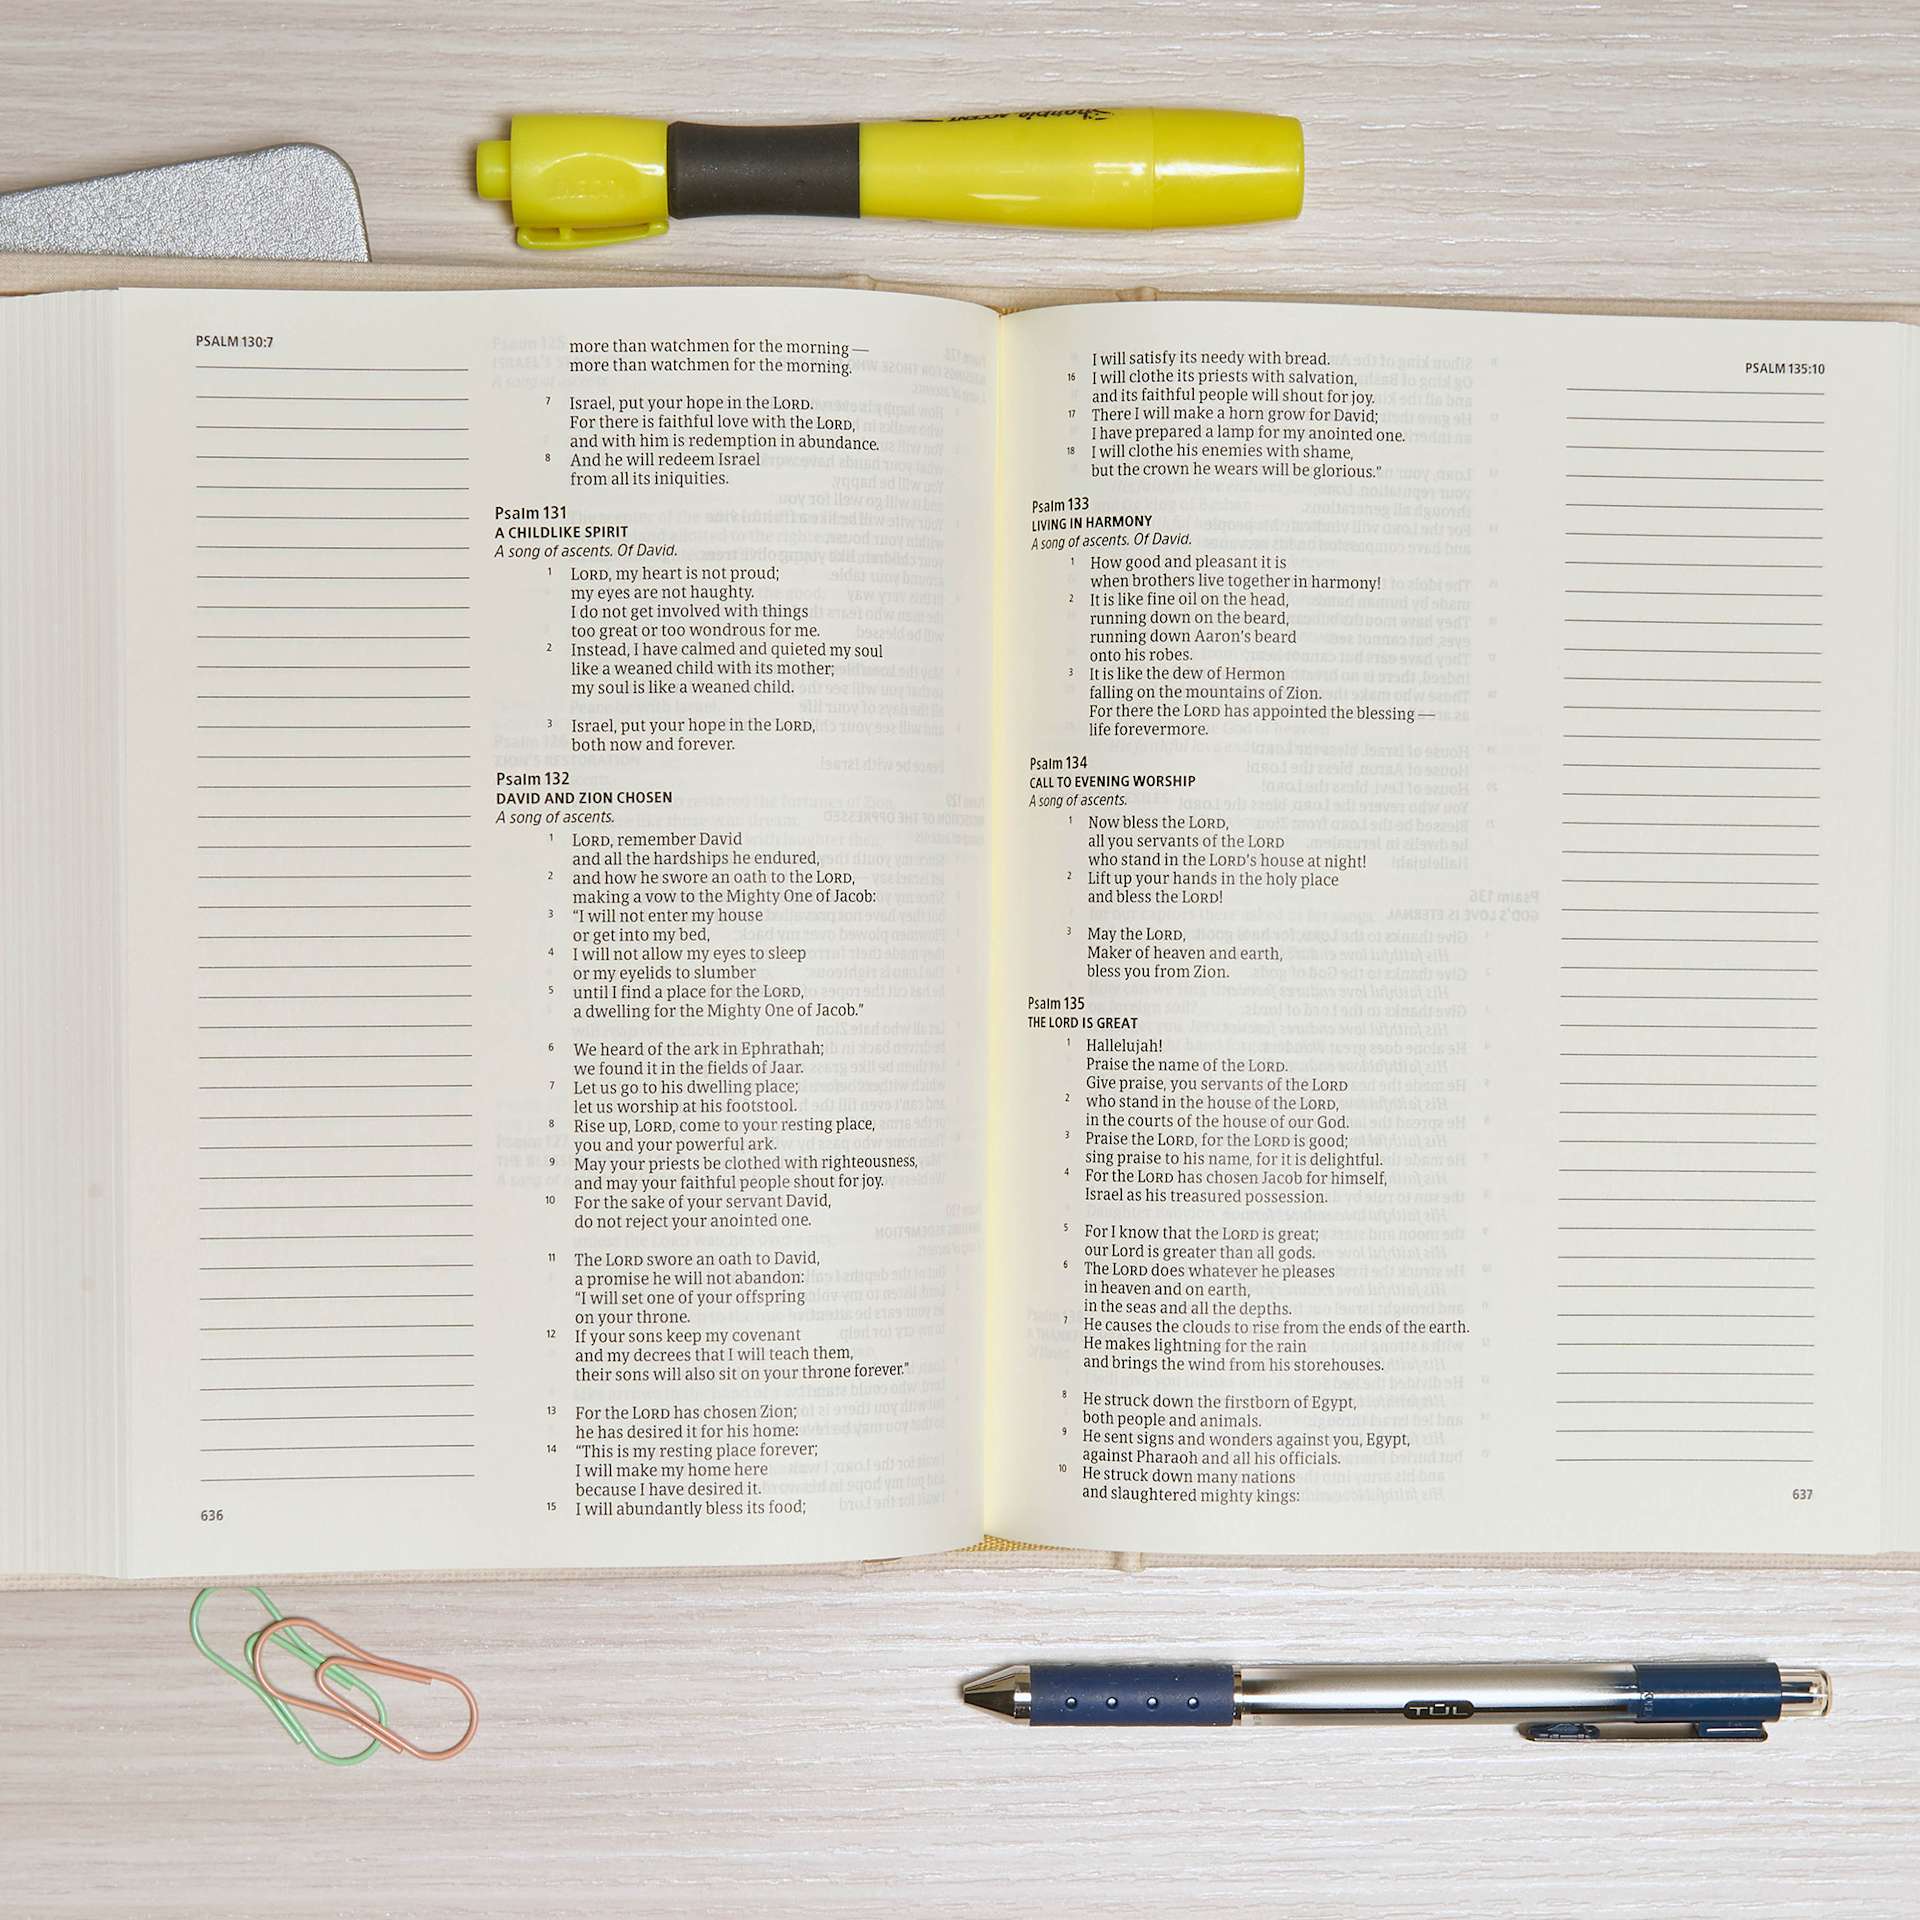 Sharpie ACCENT
PSALM 130:7
more than watchmen for the morning —
more than watchmen for the morning.
7 Israel, put your hope in the LORD.
For there is faithful love with the LORD,
and with him is redemption in abundance.
8 And he will redeem Israel
from all its iniquities.
Psalm 131
A CHILDLIKE SPIRIT
A song of ascents. Of David.
1 LORD, my heart is not proud;
my eyes are not haughty.
I do not get involved with things
too great or too wondrous for me.
2 Instead, I have calmed and quieted my soul
like a weaned child with its mother;
my soul is like a weaned child.
3 Israel, put your hope in the LORD,
both now and forever.
Psalm 132
DAVID AND ZION CHOSEN
A song of ascents.
1 LORD, remember David
and all the hardships he endured,
2 and how he swore an oath to the LORD,
making a vow to the Mighty One of Jacob:
3 “I will not enter my house
or get into my bed,
4 I will not allow my eyes to sleep
or my eyelids to slumber
5 until I find a place for the LORD,
a dwelling for the Mighty One of Jacob.”
6 We heard of the ark in Ephrathah;
we found it in the fields of Jaar.
7 Let us go to his dwelling place;
let us worship at his footstool.
8 Rise up, LORD, come to your resting place,
you and your powerful ark.
9 May your priests be clothed with righteousness,
and may your faithful people shout for joy.
10 For the sake of your servant David,
do not reject your anointed one.
11 The LORD swore an oath to David,
a promise he will not abandon:
“I will set one of your offspring
on your throne.
12 If your sons keep my covenant
and my decrees that I will teach them,
their sons will also sit on your throne forever.”
13 For the LORD has chosen Zion;
he has desired it for his home:
14 “This is my resting place forever;
I will make my home here
because I have desired it.
15 I will abundantly bless its food;
636
I will satisfy its needy with bread.
16 I will clothe its priests with salvation,
and its faithful people will shout for joy.
17 There I will make a horn grow for David;
I have prepared a lamp for my anointed one.
18 I will clothe his enemies with shame,
but the crown he wears will be glorious.”
PSALM 135:10
Psalm 133
LIVING IN HARMONY
A song of ascents. Of David.
1 How good and pleasant it is
when brothers live together in harmony!
2 It is like fine oil on the head,
running down on the beard,
running down Aaron’s beard
onto his robes.
3 It is like the dew of Hermon
falling on the mountains of Zion.
For there the LORD has appointed the blessing —
life forevermore.
Psalm 134
CALL TO EVENING WORSHIP
A song of ascents.
1 Now bless the LORD,
all you servants of the LORD
who stand in the LORD’s house at night!
2 Lift up your hands in the holy place
and bless the LORD!
3 May the LORD,
Maker of heaven and earth,
bless you from Zion.
Psalm 135
THE LORD IS GREAT
1 Hallelujah!
Praise the name of the LORD.
Give praise, you servants of the LORD
2 who stand in the house of the LORD,
in the courts of the house of our God.
3 Praise the LORD, for the LORD is good;
sing praise to his name, for it is delightful.
4 For the LORD has chosen Jacob for himself,
Israel as his treasured possession.
5 For I know that the LORD is great;
our Lord is greater than all gods.
6 The LORD does whatever he pleases
in heaven and on earth,
in the seas and all the depths.
7 He causes the clouds to rise from the ends of the earth.
He makes lightning for the rain
and brings the wind from his storehouses.
8 He struck down the firstborn of Egypt,
both people and animals.
9 He sent signs and wonders against you, Egypt,
against Pharaoh and all his officials.
10 He struck down many nations
and slaughtered mighty kings:
637
TŪL